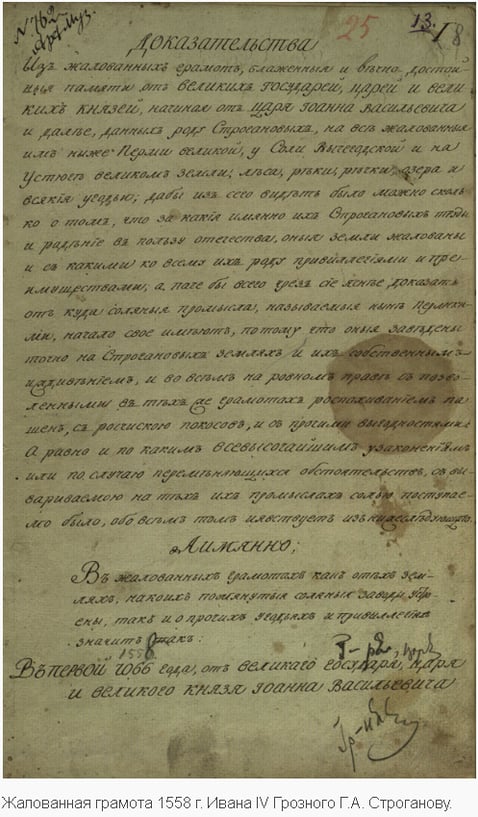 N 762
25
13.
Доказательства
Изъ жалованныхъ грамотъ, блаженныя и вѣчно достой-
ныя памяти отъ великихъ государей, царей и вели-
кихъ князей, начиная отъ царя Іоанна Васильевича
и далѣе, данныхъ роду Строгановыхъ, на всѣ жалованныя
имъ ниже Перми великой, у Соли Вычегодской и на
Устюгѣ великомъ земли; лѣса, рѣки, рѣчки, озера и
всякія угодьи; дабы изъ сего видѣть было можно сколь-
ко о томъ, что за какія имянно ихъ Строгановыхъ
и радѣніе въ пользу отечества, оныя земли жалованы
и съ какими ко всему ихъ роду привиллегіями и пре-
имуществами; а паче бы всего чрезъ сіе доказать
отъ куда соляныя промысла, называемыя нынѣ Пермски-
ми, начало свое имѣютъ, потому что оныя заведены
точно на Строгановыхъ земляхъ и ихъ собственнымъ
иждивѣніемъ, и во всѣмъ на ровномъ правѣ съ позво-
ленными въ тѣхъ же грамотахъ роспахиваніемъ па-
шенъ, съ росчискою покосовъ, и съ прочими выгодностями.
А равно и по какимъ всевысочайшимъ узаконеніямъ
или по случаю перемѣняющихся обстоятельствъ, съ вы-
вариваемою на тѣхъ ихъ промыслахъ солью поступае-
мо было, обо всѣмъ томъ явствуетъ изъ нижеслѣдующаго.
А имянно;
Въ жалованныхъ грамотахъ какъ отѣхъ зем-
ляхъ, на коихъ помянутыя соляныя заводы
ены, такъ и о прочихъ угодьяхъ и привиллегіяхъ
значитъ такъ:
1558
Въ первой 7066 года, отъ великаго государя, царя
и великаго князя Іоанна Васильевича
Жалованная грамота 1558 г. Ивана IV Грозного Г.А. Строганову.